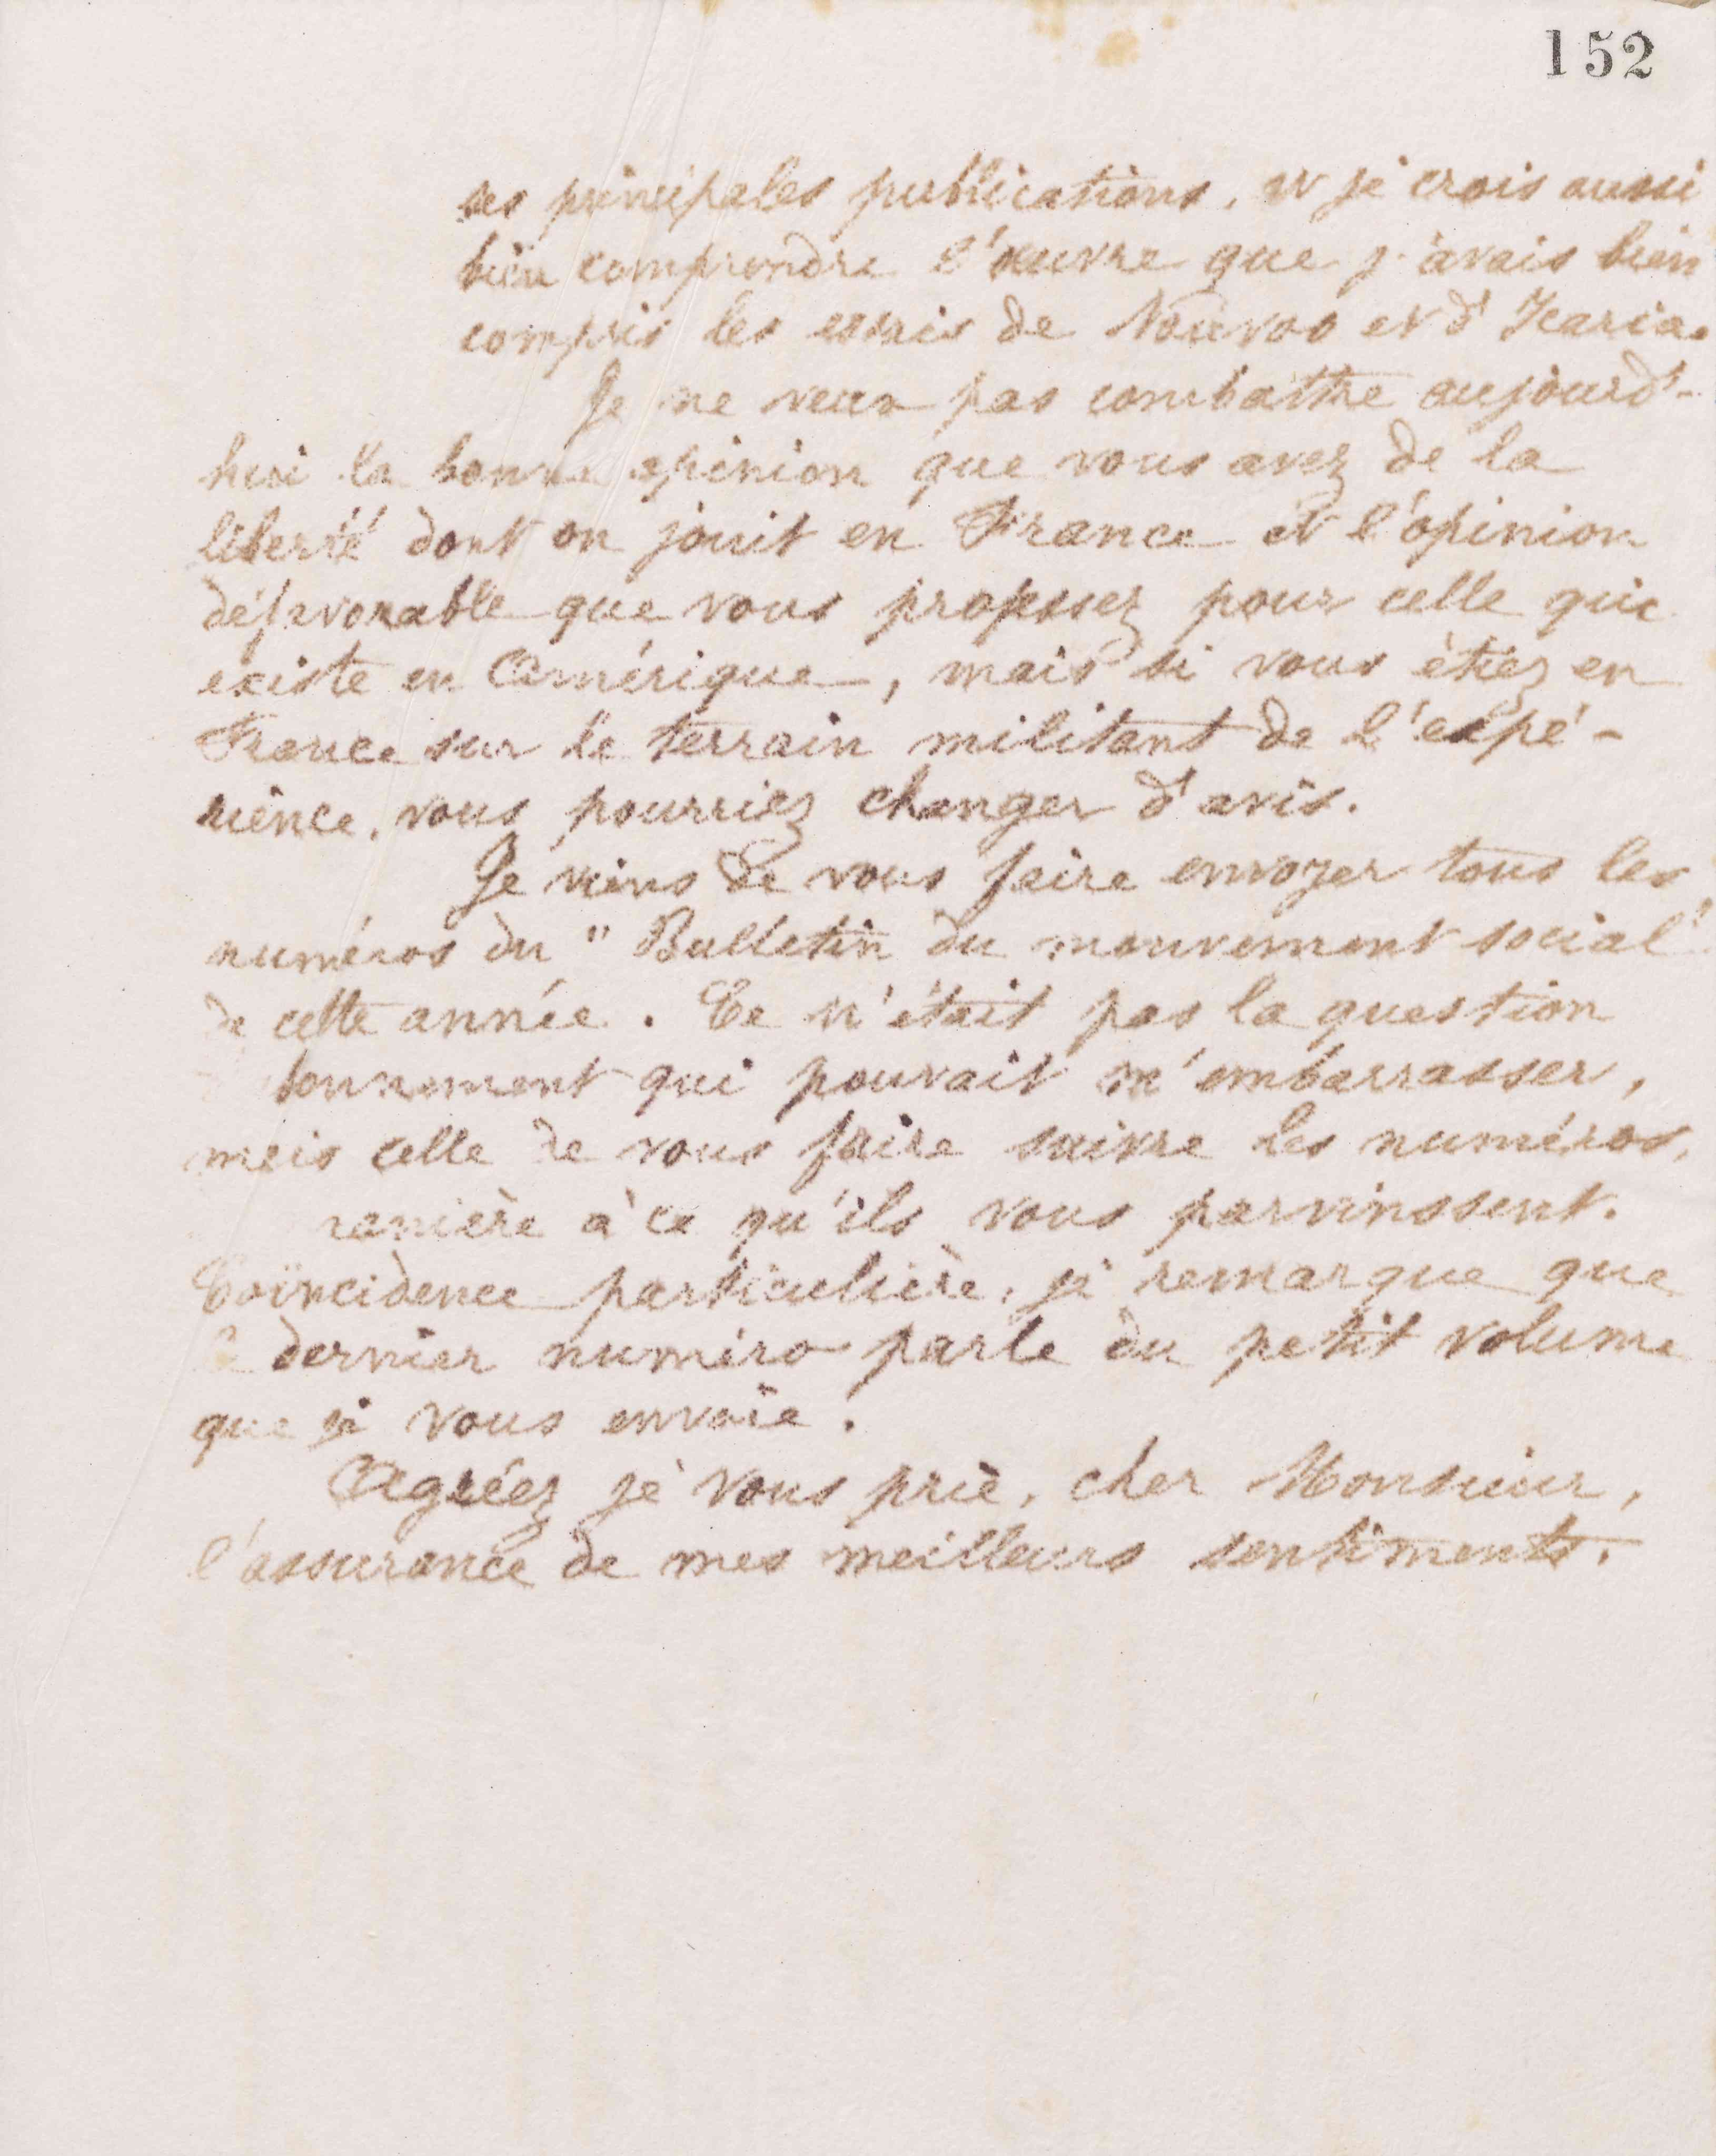 152
ses principales publications, et je crois aussi
bien comprendre l'œuvre que j'avais bien
compris les essais de Nauvoo et d'Icaria.
Je ne veux pas combattre aujourd'-
hui la bonne opinion que vous avez de la
liberté dont on jouit en France et l'opinion
défavorable que vous professez pour celle qui
existe en Amérique, mais si vous étiez en
France sur le terrain militant de l'expé-
rience, vous pourriez changer d'avis.
Je viens de vous faire envoyer tous les
numéros du "Bulletin du mouvement social"
de cette année. Ce n'était pas la question
bonnement qui pouvait m'embarrasser,
mais celle de vous faire suivre les numéros,
manière à ce qu'ils vous parvinssent.
Coïncidence particulière, je remarque que
le dernier numéro parle du petit volume
que je vous envoie.
Agréez, je vous prie, cher Monsieur,
l'assurance de mes meilleurs sentiments.